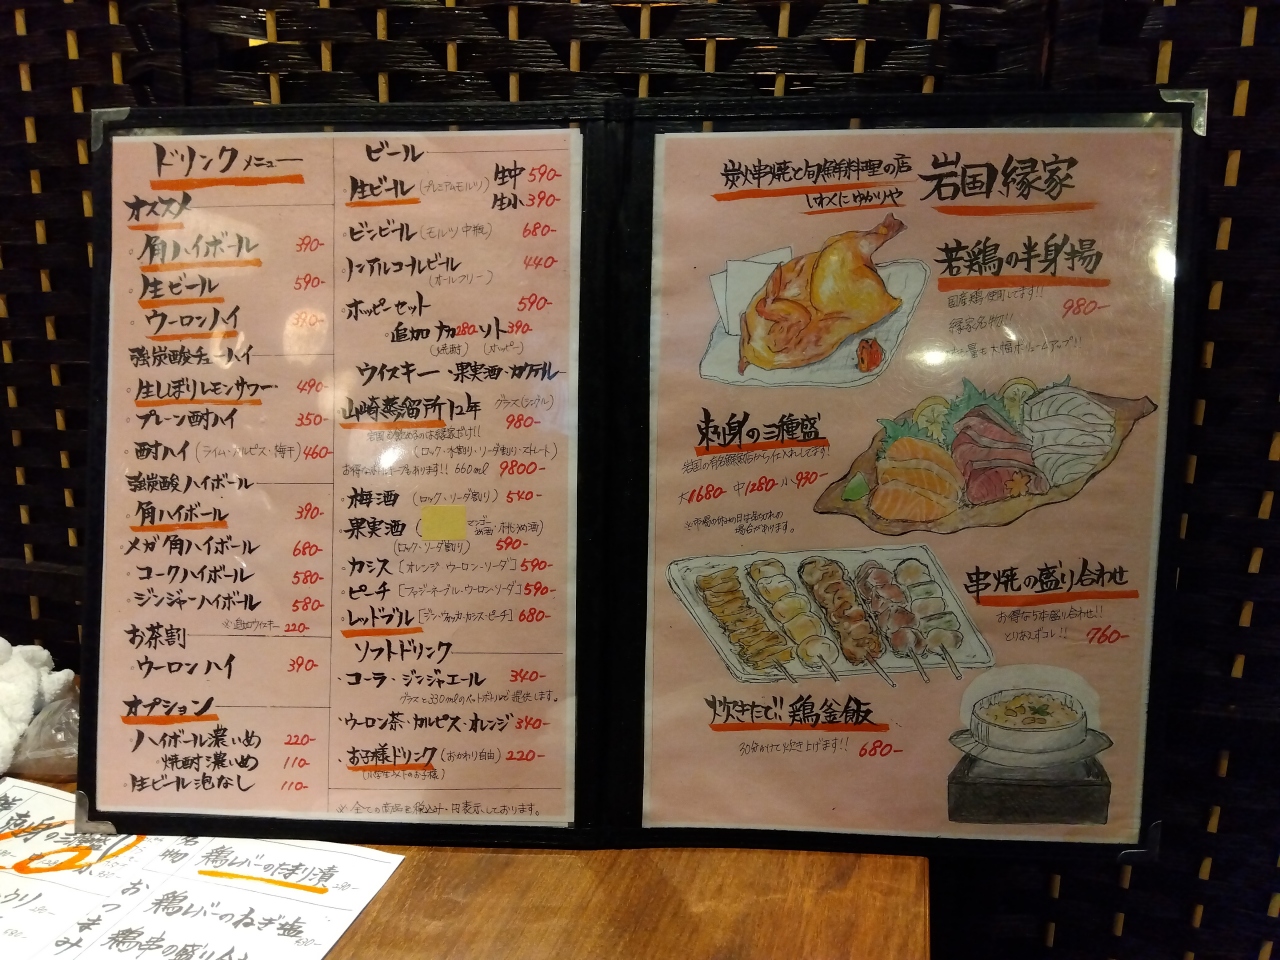 ドリンクメニュー
オススメ
角ハイボール 390-
生ビール 590-
ウーロンハイ 390-
強炭酸チューハイ
生しぼりレモンサワー 490-
プレーン酎ハイ 350-
酎ハイ (ライム・カルピス・梅干) 460-
強炭酸ハイボール
角ハイボール 390-
メガ角ハイボール 680-
コークハイボール 580-
ジンジャーハイボール 580-
※追加ウイスキー 220-
お茶割
ウーロンハイ 390-
オプション
ハイボール濃いめ 220-
焼酎濃いめ 110-
生ビール泡なし 110-
ビール
生ビール (プレミアムモルツ) 生中 590-
生小 390-
ビンビール (モルツ中瓶) 680-
ノンアルコールビール 440-
(オールフリー)
ホッピーセット 590-
追加 ナカ280- ソト390-
(焼酎) (ホッピー)
ウイスキー・果実酒・カクテル
山崎蒸留所12年 グラス(シングル) 980-
(ロック・水割り・ソーダ割り・ストレート)
お得なボトルキープもあります!! 660ml 9800-
梅酒 (ロック・ソーダ割り) 540-
果実酒 (マンゴー
(ロック・ソーダ割り) 590-
カシス [オレンジ・ウーロン・ソーダ] 590-
ピーチ [ファジーネーブル・ウーロン・ソーダ] 590-
レッドブル [ジン・ウォッカ・カシス・ピーチ] 680-
ソフトドリンク
コーラ・ジンジャエール 340-
グラスと330mlのペットボトルで提供します。
ウーロン茶・カルピス・オレンジ 340-
お子様ドリンク (おかわり自由) 220-
(小学生以下のお子様)
※全ての商品を税込み・円表示しております。
炭火串焼と旬鮮料理の店 岩国 縁家
いわくに ゆかりや
若鶏の半身揚
国産鶏使用してます!! 980-
縁家名物!!
大幅ボリュームアップ!!
刺身の三種盛
岩国の有名鮮魚店から仕入れしてます!
大1680- 中1280- 小930-
※市場の休みの日は品切れの
場合があります。
串焼の盛り合わせ
お得な5本盛り合わせ!!
とりあえずコレ!! 760-
炊きたて!! 鶏釜飯
30分かけて炊き上げます!! 680-
刺身の三種盛
名物
おつまみ
鶏レバーのたまり漬
鶏レバーのねぎ塩
鶏串の盛り合